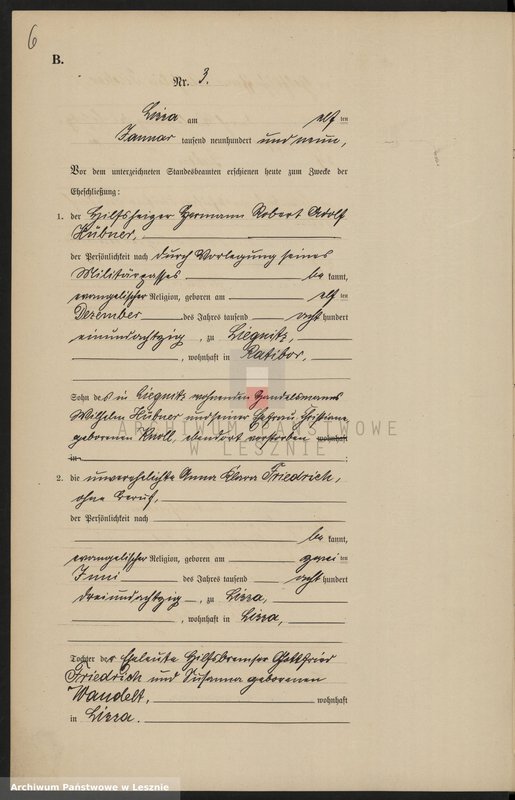 6
B.
Nr. 3.
Lissa am elf ten
Januar tausend neunhundert und neun,
Vor dem unterzeichneten Standesbeamten erschienen heute zum Zwecke der
Eheschließung:
1. der Hilfsheizer Hermann Robert Adolf
Hübner,
der Persönlichkeit nach durch Vorlegung seines
Militärpasses be kannt,
evangelischer Religion, geboren am elf ten
Dezember des Jahres tausend acht hundert
einundachtzig, zu Liegnitz,
, wohnhaft in Ratibor,
Sohn des in Liegnitz wohnenden Handelsmanns
Wilhelm Hübner und seiner Ehefrau Christiane
geborenen Knoll, ebendort verstorben wohnhaft
in :
ARCHIWUM PAŃSTWOWE
W LESZNIE
2. die unverehelichte Anna Klara Friedrich,
ohne Beruf,
der Persönlichkeit nach
be kannt,
evangelischer Religion, geboren am zwei ten
Juni des Jahres tausend acht hundert
dreiundachtzig, zu Lissa,
, wohnhaft in Lissa,
Tochter der Eheleute Hilfsbremser Gottfried
Friedrich und Susanna geborenen
Wandelt, wohnhaft
in Lissa.
Archiwum Państwowe w Lesznie